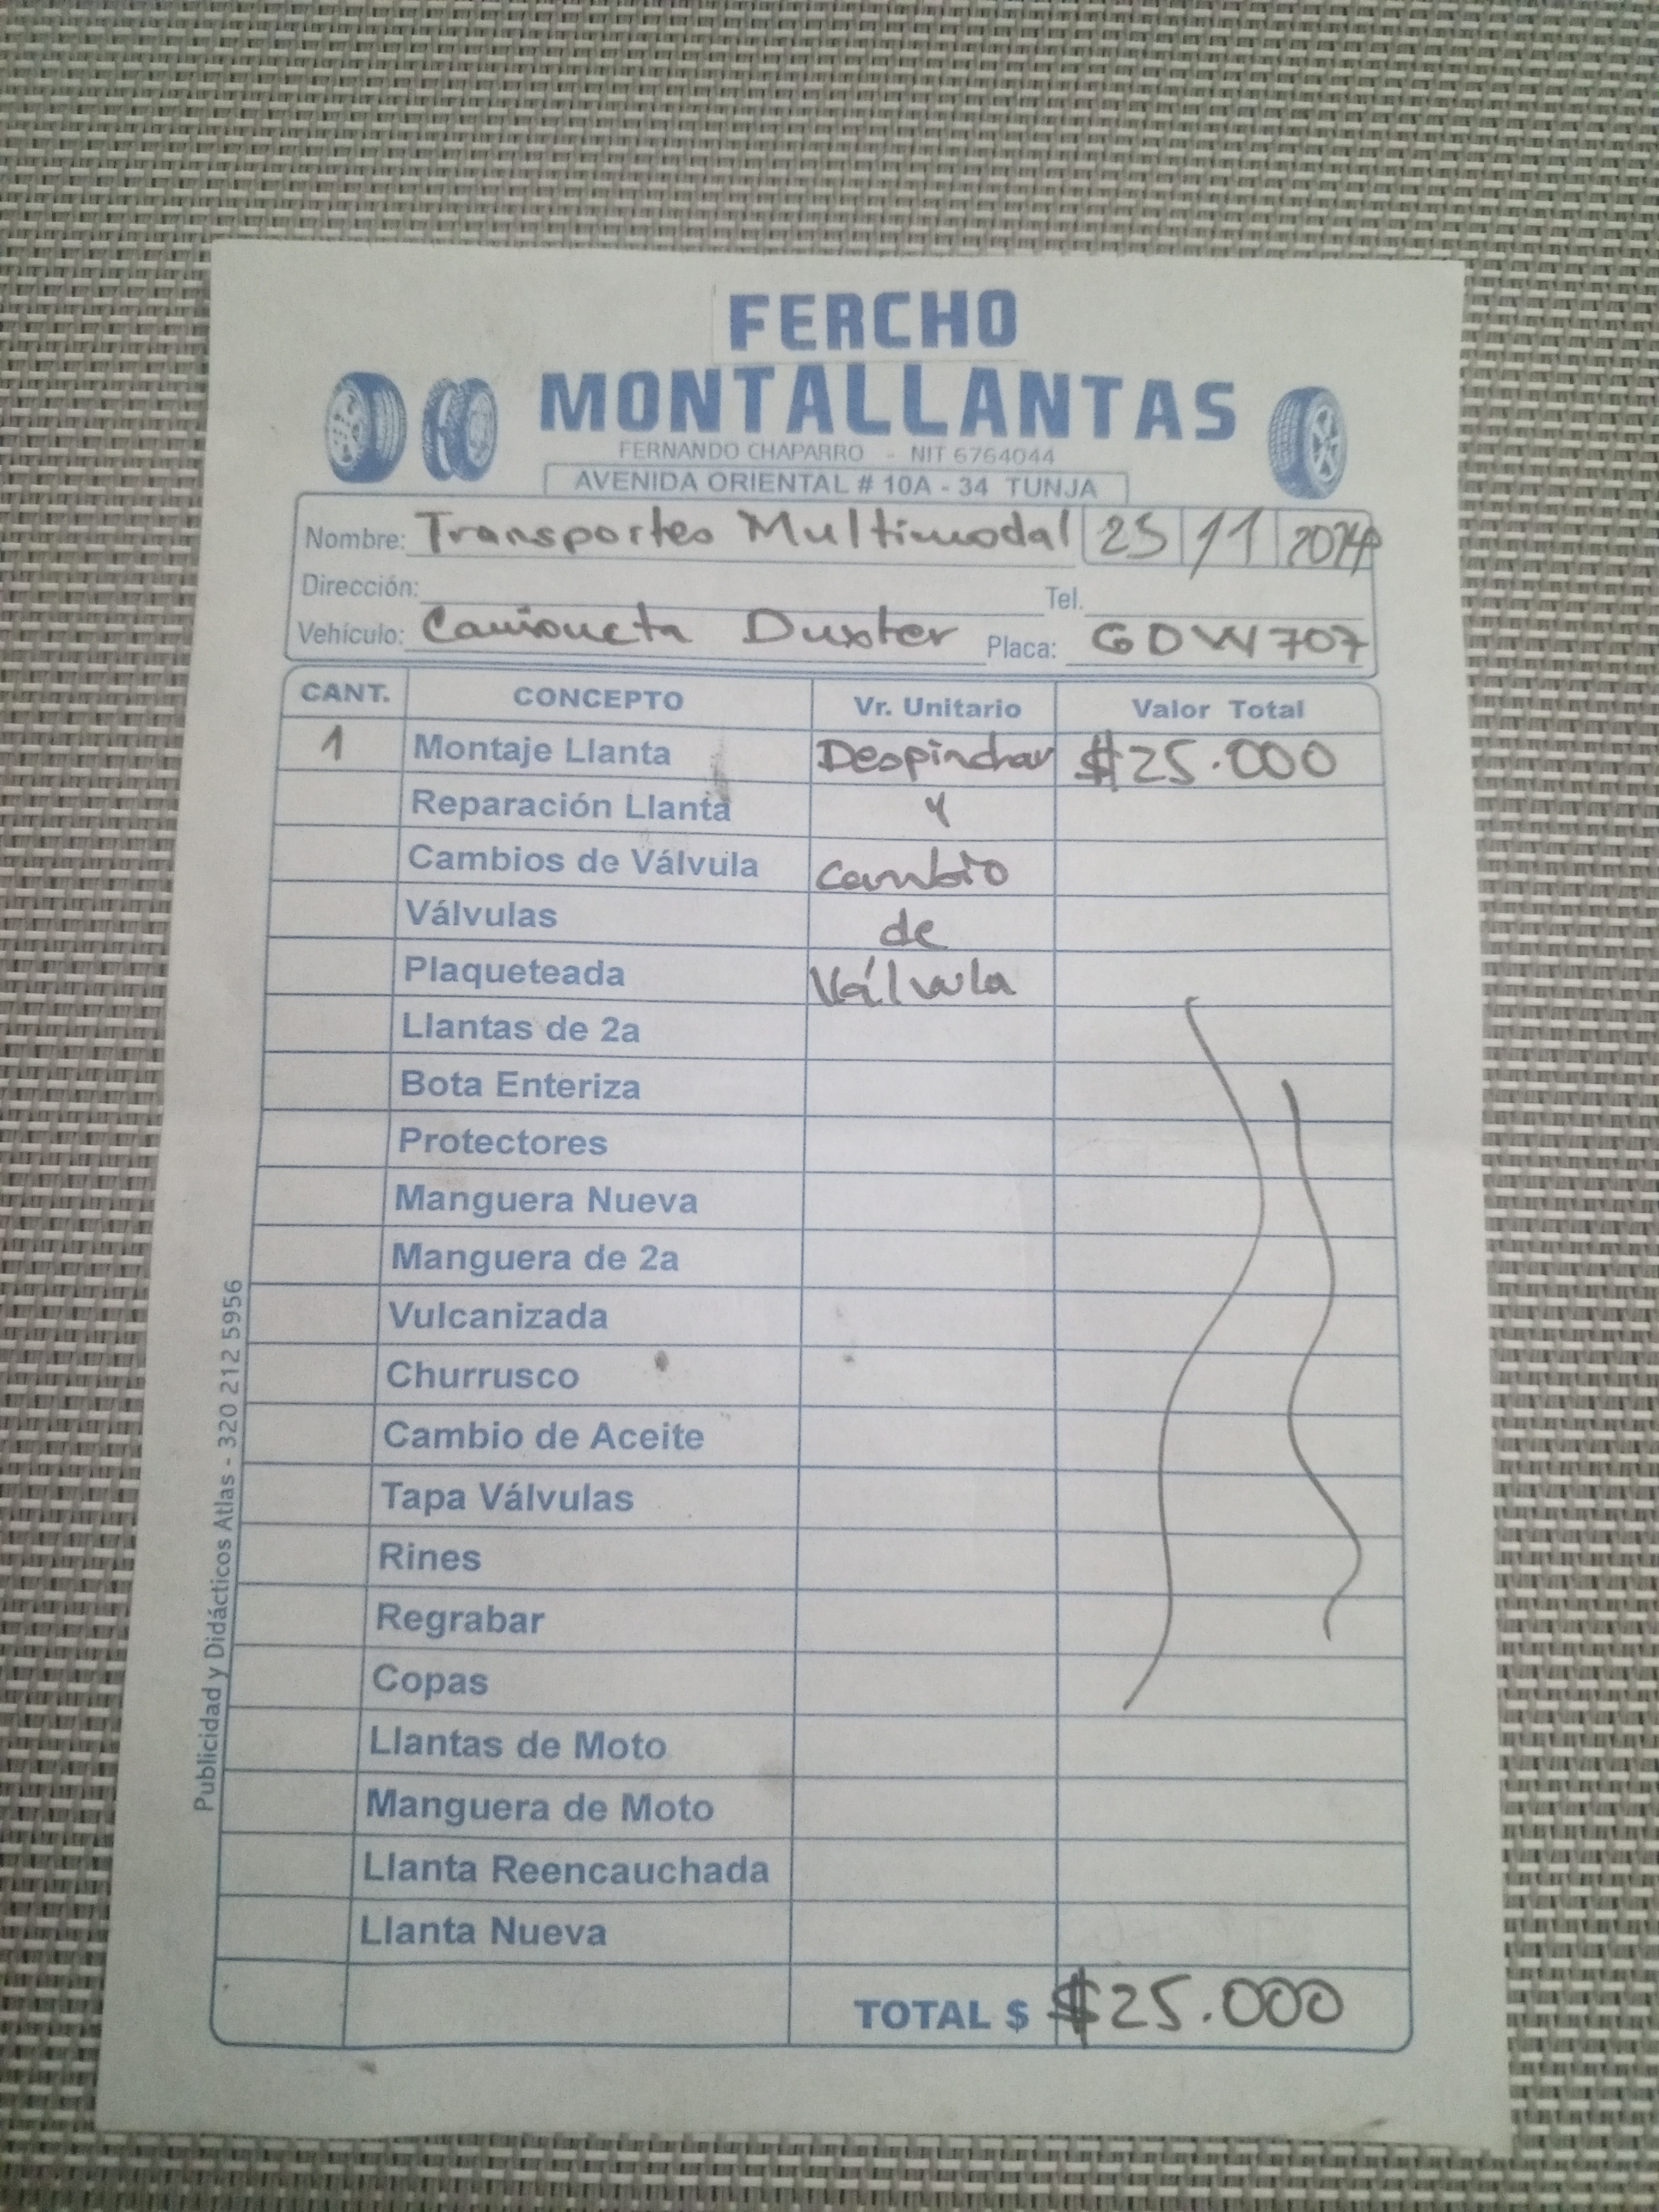 FERCHO
MONTALLANTAS
FERNANDO CHAPARRO - NIT 6764044
AVENIDA ORIENTAL # 10A - 34 TUNJA
Nombre: Transportes Multimodal 25 11
Dirección: Tel.
Vehículo: Camioneta Duster Placa: GDW707
CANT. CONCEPTO Vr. Unitario Valor Total
1 Montaje Llanta Despinchar $25.000
Reparación Llanta y
Cambios de Válvula cambio
Válvulas de
Plaqueteada Válvula
Llantas de 2a
Bota Enteriza
Protectores
Manguera Nueva
Manguera de 2a
Vulcanizada
Churrusco
Cambio de Aceite
Tapa Válvulas
Rines
Regrabar
Copas
Llantas de Moto
Manguera de Moto
Llanta Reencauchada
Llanta Nueva
TOTAL $ $25.000
Publicidad y Didácticos Atlas - 320 212 5956